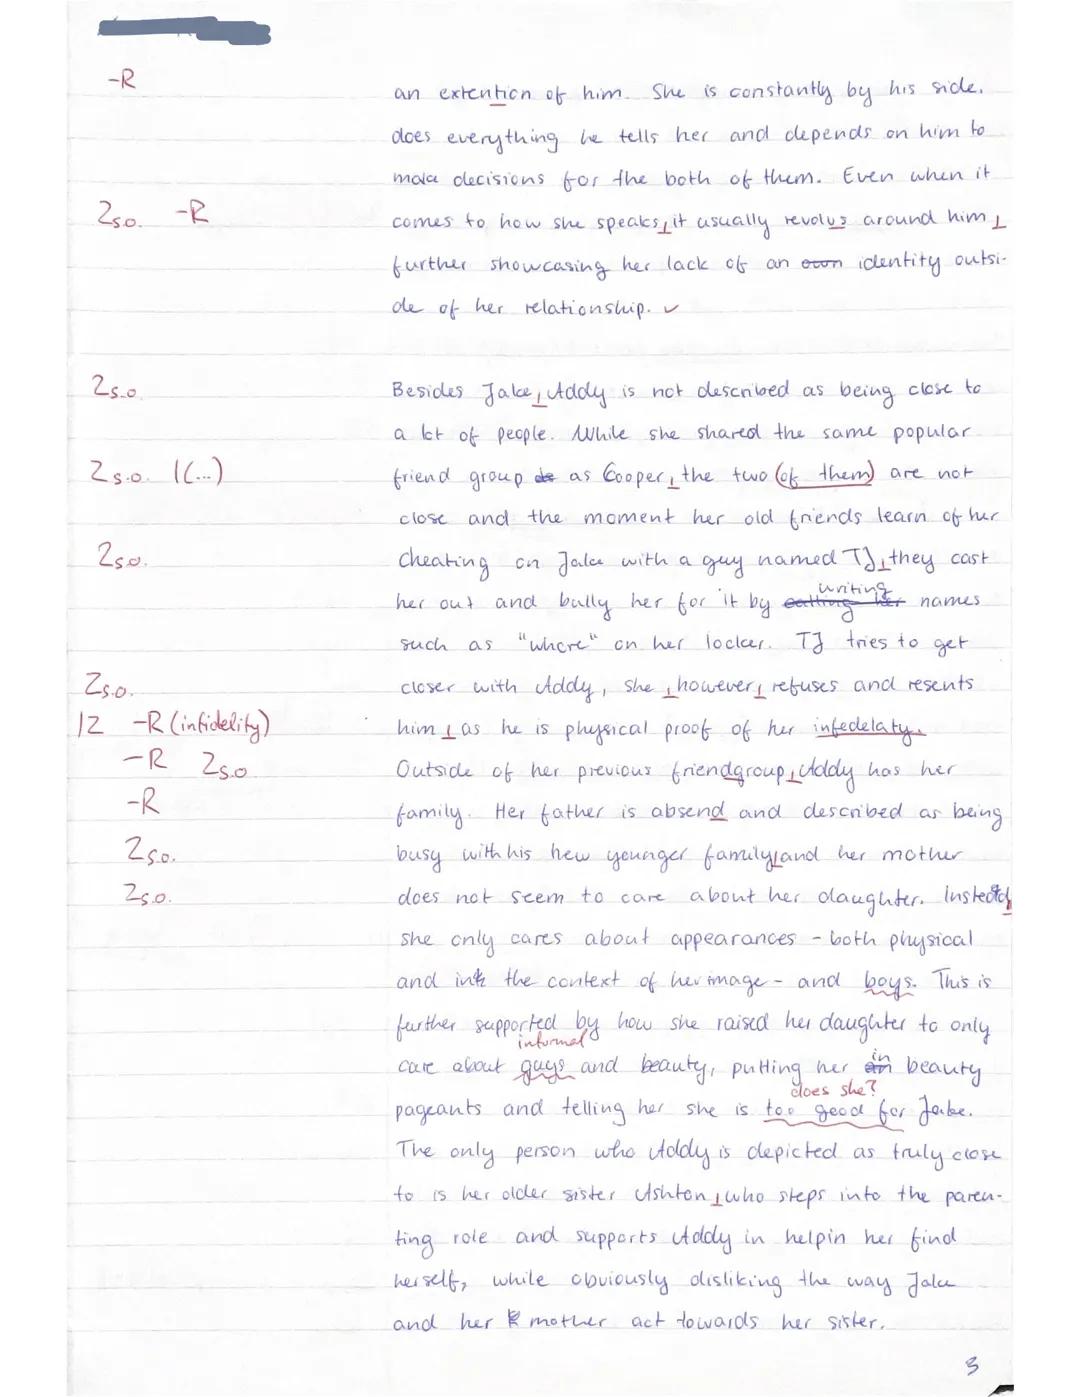 -R
an extention of him. She is constantly by his side,
does everything he tells her and depends on him to
make decisions for the both of them. Even when it
2s.o. -R
comes to how she speaks, it usually revolvs around him,
further showcasing her lack of an own identity outsi-
de of her relationship. ✓
2s.o.
Besides Jake, Addy is not described as being close to
a lot of people. While she shared the same popular
2s.o. 1(...)
friend group as Cooper, the two (of them) are not
close and the moment her old friends learn of her
2s.o.
cheating on Jake with a guy named TJ, they cast
writing
her out and bully her for it by calling her names
such as "whore" on her locker. TJ tries to get
2s.o.
closer with Addy, she, however, refuses and resents
12 -R (infidelity)
him, as he is physical proof of her infedelaty.
-R 2s.o.
Outside of her previous friendgroup, Addy has her
-R
family. Her father is absend and described as being
2s.o.
busy with his new younger family, and her mother
2s.o.
does not seem to care about her daughter. Instead,
she only cares about appearances - both physical
and in the context of her image - and boys. This is
further supported by how she raised her daughter to only
informal
care about guys and beauty, putting her in beauty
does she?
pageants and telling her she is too good for Jake.
The only person who Addy is depicted as truly close
to is her older sister Ashton, who steps into the paren-
ting role and supports Addy in helpin her find
herself, while obviously disliking the way Jake
and her mother act towards her sister.
3